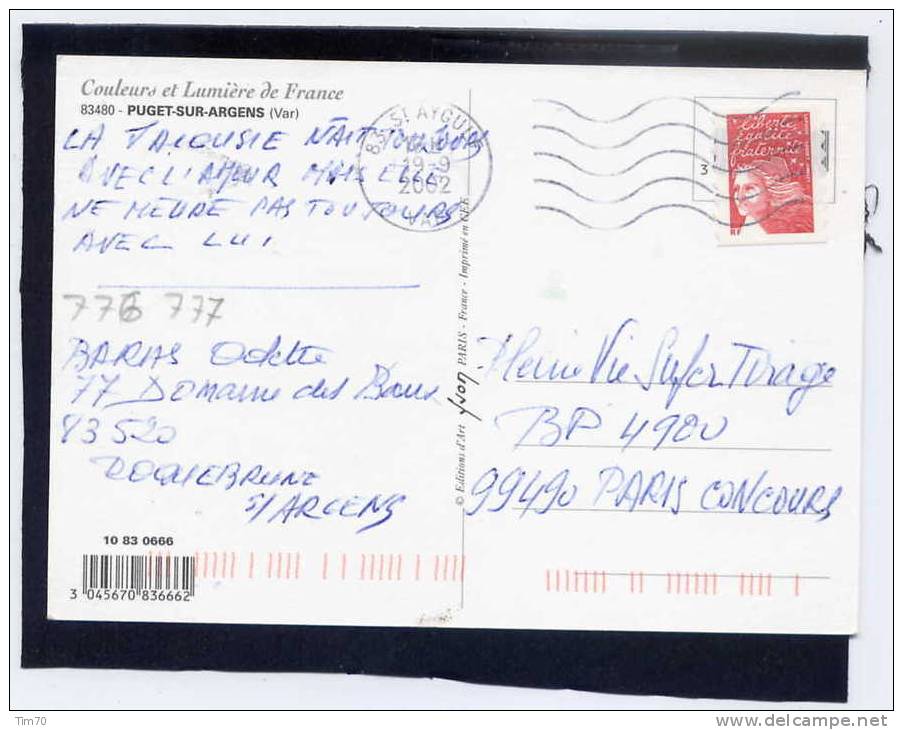 Couleurs et Lumière de France
83480 - PUGET-SUR-ARGENS (Var)
LA JALOUSIE NAIT TOUJOURS
AVEC L'AMOUR MAIS ELLE
NE MEURE PAS TOUJOURS
AVEC LUI
776 777
BARIAS Odette
77 Domaine des
83520
ROQUEBRUNE
S/ARGENS
10 83 0666
3 045670 836662
© Editions d'Art Yvon PARIS - France - Imprimé en CEE
83 ST AYGULF
19-9
2002
VAR
liberté
égalité
fraternité
RF
3
Pleine Vie Super Tirage
BP 4980
99490 PARIS CONCOURS
Tim70
www.delcampe.net